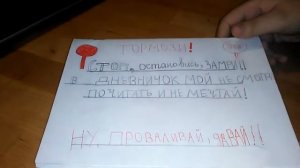 ТОРМОЗИ!
СТОП, остановись, ЗАМРИ!!
В ДНЕВНИЧОК МОЙ НЕ СМОТРИ
ПОЧИТАТЬ И НЕ МЕЧТАЙ!
НУ, ПРОВАЛИВАЙ, ДАВАЙ!!